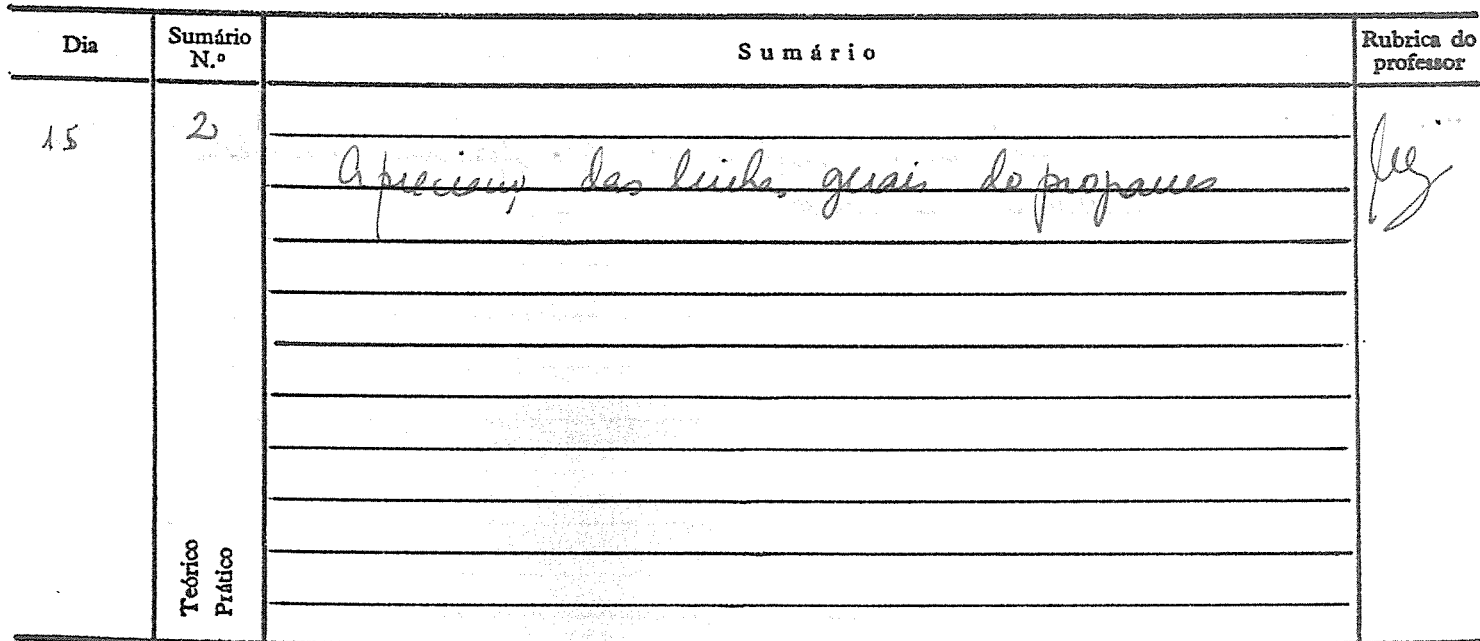 Dia
Sumário N.º
Sumário
Rubrica do professor
15
2
Apreciação das linhas gerais do programa
Teórico
Prático